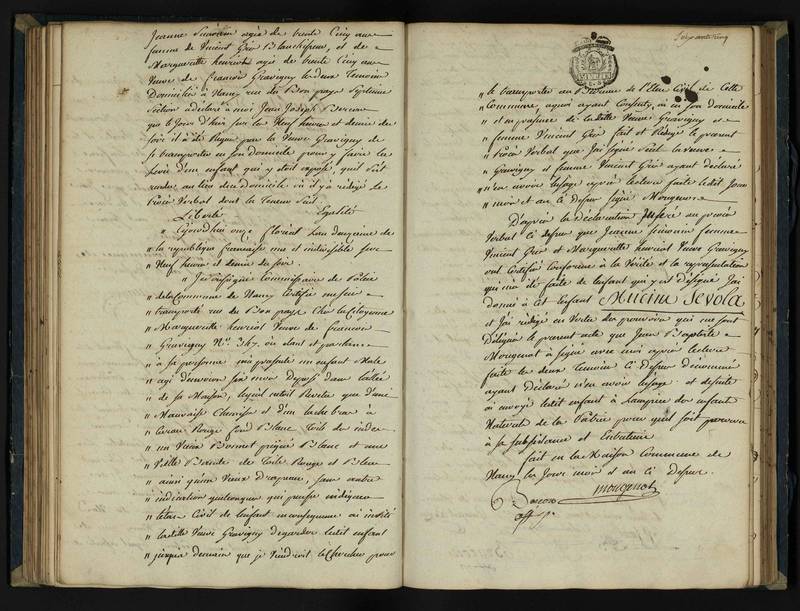 Jeanne Simonin agée de trente Cinq ans
femme de Vincent Gré Blanchisseur, et de
Marguerite henriot agée de trente Cinq ans
Veuve de francois Gravigny les deux Temoins
Domiciliés à Nancy rue du Bon pays Septieme
Section a déclaré à moi Jean Joseph
que le Jour d'hier sur les Neuf heures et demie du
soir il a été Requis par la Veuve Gravigny de
se transporter en son domicile pour y faire la
Levée d'un enfant qui y étoit exposé, quil s'est
rendu au lieu du domicile où il y a rédigé le
Procès Verbal dont la Teneur Suit.
Liberté Egalité
" Cejourd'hui onze floréal L'an douzieme de
" la république francaise une et indivisible sur
" Neuf heures et demie du soir.
" Je soussigné Commissaire de Police
" de la Commune de Nancy Certifie m'être
" transporté rue du Bon pays Chez la Citoyenne
" Marguerite henriot Veuve de francois
" Gravigny N.° 347. où étant et parlant
" à sa personne m'a présenté un enfant Male
" agé d'environ Six mois Déposé dans l'allée
" de sa Maison, lequel entoit Revetu que d'une
" Mauvaise Chemise et d'un
" Rouge fond Blanc Toile des indes
" un Vieux Bonnet piqué Blanc et une
" Petite Bande de Toile Rouge et Bleu
" ainsi qu'un Vieux Drapeau, sans autre
" indication quelconque qui puisse indiquer
" létat Civil de l'enfant inconséquence ai invité
" la dite Veuve Gravigny de garder ledit enfant
" jusqu'à demain que je viendroit le Chercher pour
" le transporter au Bureau de l'Etat Civil de Cette
" Commune, à quoi ayant Consenti, où en son domicile
" et en présence de la ditte Veuve Gravigny et
" femme Vincent Gré fait et Rédigé le present
" Procès Verbal que J'ai signé Seul la veuve
" Gravigny et femme Vincent Gré ayant déclaré
" n'en avoir lusage après lecture faite ledit Jour
" mois et an ci dessus signé Mougenot
D'après la Déclaration Inséré au procès
Verbal ci dessus que Jeanne Simonin femme
Vincent Gré et Marguerite henriot Veuve Gravigny
ont Certifié Conforme à la Vérité et la représentation
qui m'a été faite de lenfant qui y est désigné J'ai
donné à Cet enfant Mucius Sevola
et J'ai rédigé en Vertu des pouvoirs qui me sont
Délégués le present acte que Jean Baptiste
Mougenot à signé avec moi après lecture
faite les deux Temoins Ci Dessus Dénommés
ayant Déclaré n'en avoir lusage et desuite
ai envoyé ledit enfant à Lhospice des enfans
Naturels de la Patrie pour quil soit pourvu
à sa subsistance et Entretien
fait en la Maison Commune de
Nancy les Jour mois et an Ci Dessus.
Mougenot